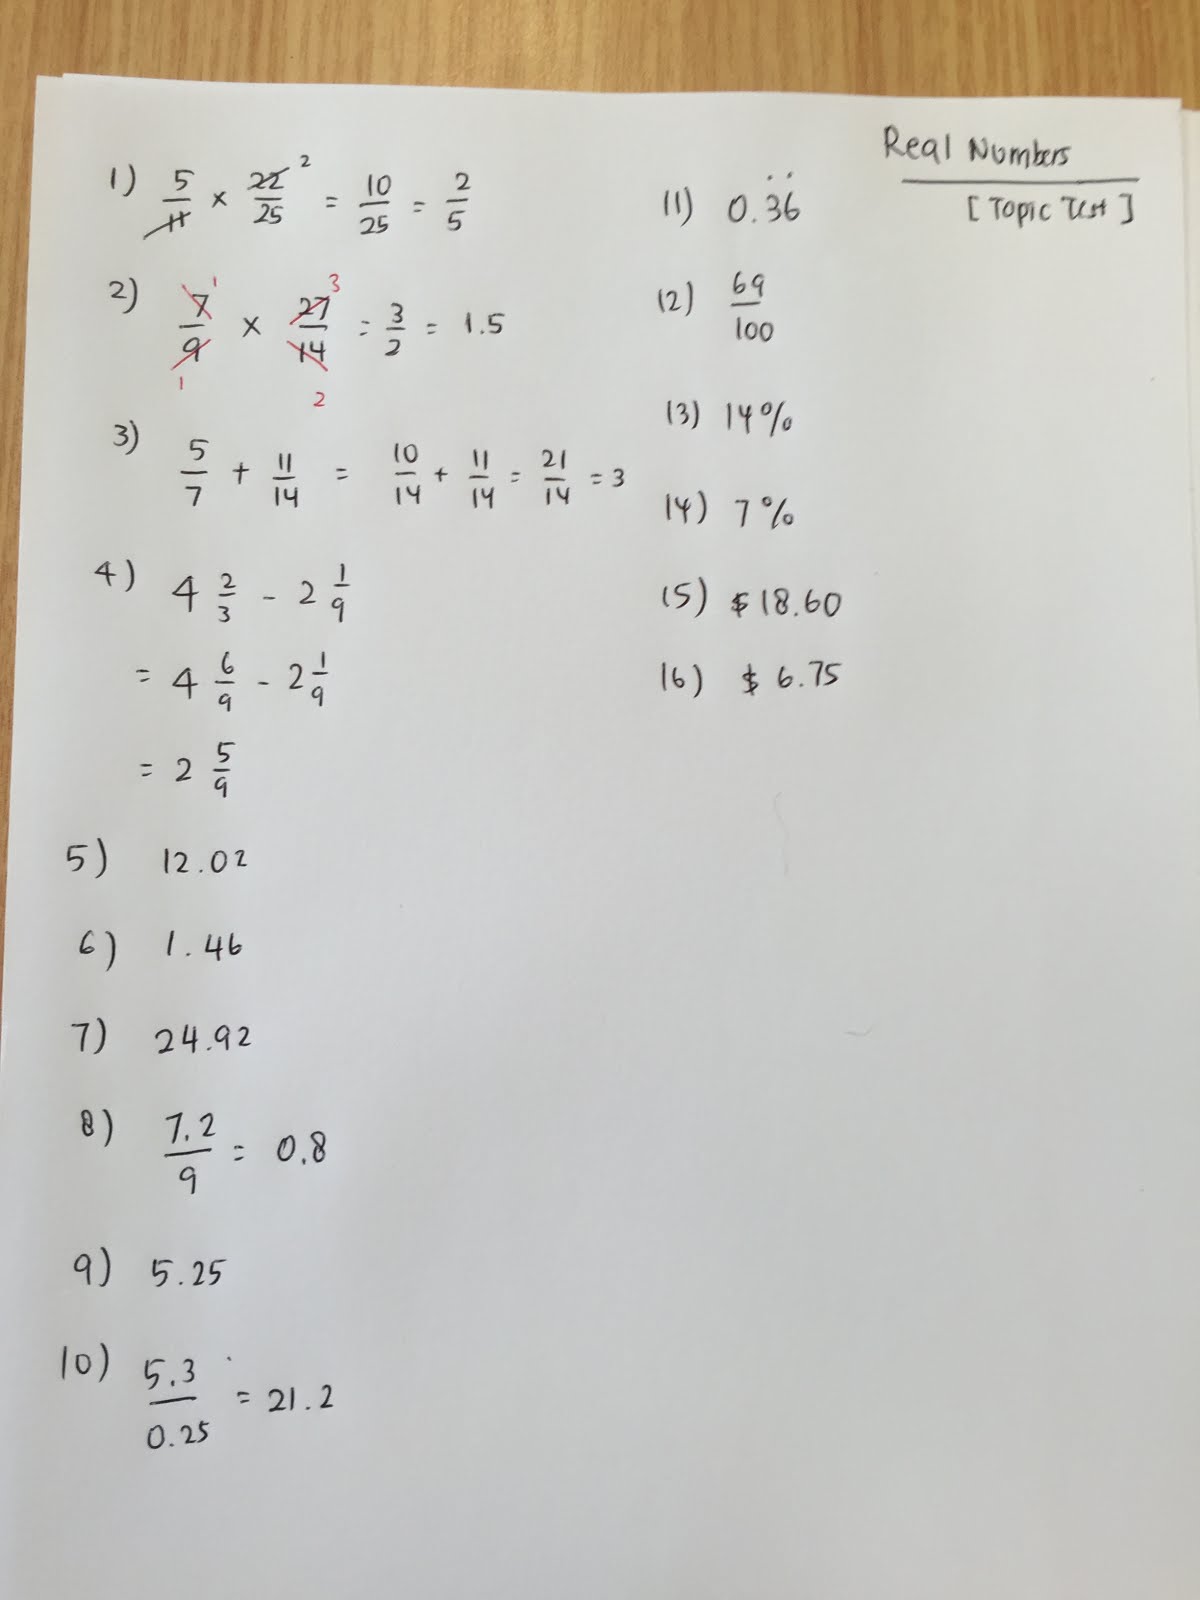 Real Numbers
[Topic Test]
1) 5/11 × 22/25 2 = 10/25 = 2/5
2) 7/9 1 1 × 27/14 3 2 = 3/2 = 1.5
3) 5/7 + 11/14 = 10/14 + 11/14 = 21/14 = 3
4) 4 2/3 - 2 1/9
= 4 6/9 - 2 1/9
= 2 5/9
5) 12.02
6) 1.46
7) 24.92
8) 7.2/9 = 0.8
9) 5.25
10) 5.3/0.25 = 21.2
11) 0.3̇6̇
12) 69/100
13) 14%
14) 7%
15) $18.60
16) $6.75